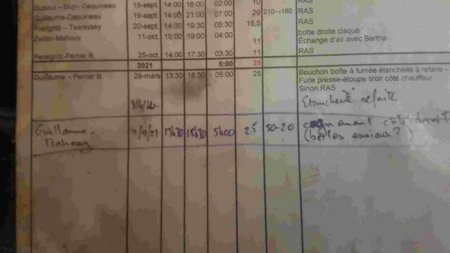 15-sept. 14:00 16:00 02:00 10 RAS
Guillaume-Caquineau 19-sept. 14:00 21:00 07:00 29 210->180 RAS
20-sept. 14:00 19:30 05:30 16,5 RAS
boite droite claque
11-oct. 15:00 19:00 04:00 11 Echange d'air avec Bertha
25-oct. 14:00 17:30 03:30 11 RAS
2021 5:00 25
Guillaume – Perrier B. 28-mars 13:30 18:30 05:00 25 Bouchon boîte à fumée étanchéité à refaire –
Fuite presse-étoupe tiroir côté chauffeur
Sinon RAS
Etanchéité refaite
Guillaume 13h30 18h30 5h00 25 50-20 côté droit
(boîtes essieux ?)